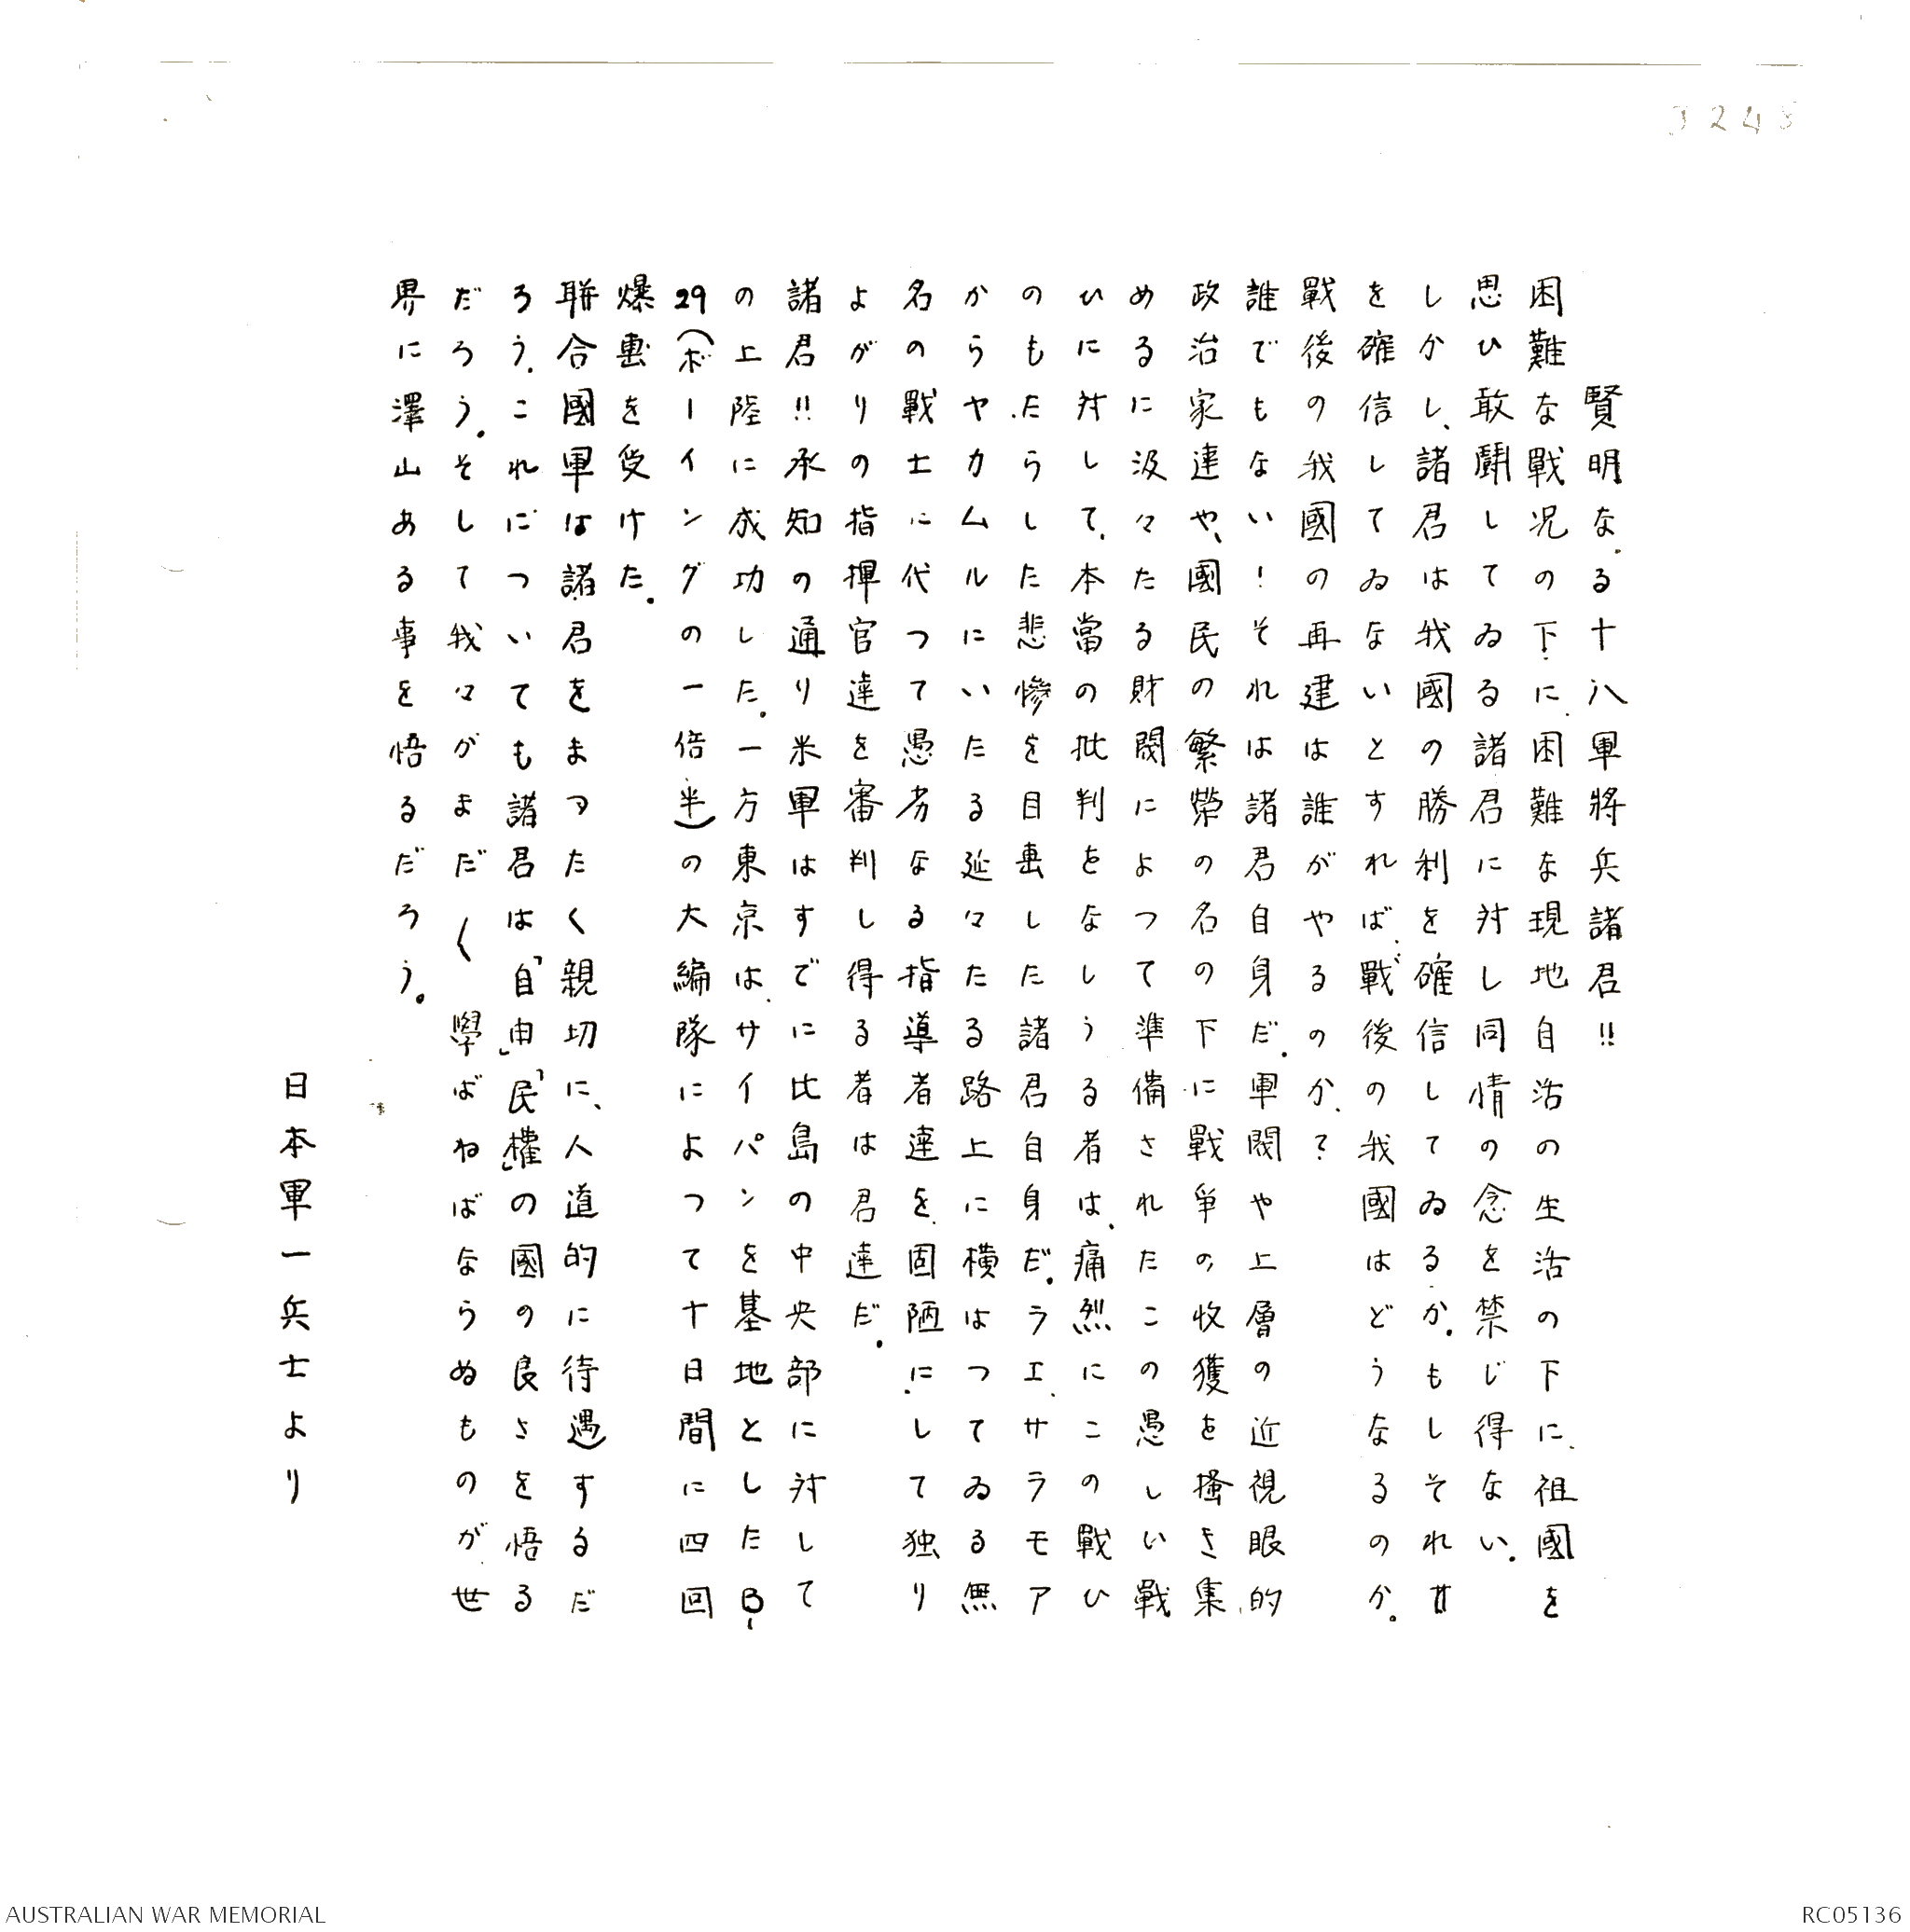 3248
賢明なる十八軍將兵諸君!!
困難な戰況の下に困難な現地自活の生活の下に、祖國を
思ひ敢鬪してゐる諸君に対し同情の念を禁じ得ない。
しかし、諸君は我國の勝利を確信してゐるか。もしそれ
を確信してゐないとすれば、戰後の我國はどうなるのか。
戰後の我國の再建は誰がやるのか?
誰でもない!それは諸君自身だ。軍閥や上層の近視眼的
政治家達や、國民の繁榮の名の下に戰爭の收獲を搔き集
めるに汲々たる財閥によつて準備されたこの愚しい戰
ひに対して、本當の批判をなしうる者は、痛烈にこの戰ひ
のもたらした悲慘を目擊した諸君自身だ。ラエ、サラモア
からヤカムルにいたる延々たる路上に横はつてゐる無
名の戰士に代つて愚劣なる指導者達を、固陋にして独り
よがりの指揮官達を審判し得る者は君達だ。
諸君!!承知の通り米軍はすでに比島の中央部に対して
の上陸に成功した。一方東京は、サイパンを基地としたB-
29(ボーイングの一倍半)の大編隊によつて十日間に四回
爆擊を受けた。
聯合國軍は諸君をまつたく親切に、人道的に待遇するだ
ろう。これについても諸君は「自由」「民權」の國の良さを悟る
だろう。そして我々がまだ〱學ばねばならぬものが、世
界に澤山ある事を悟るだろう。
日本軍一兵士より
AUSTRALIAN WAR MEMORIAL
RC05136